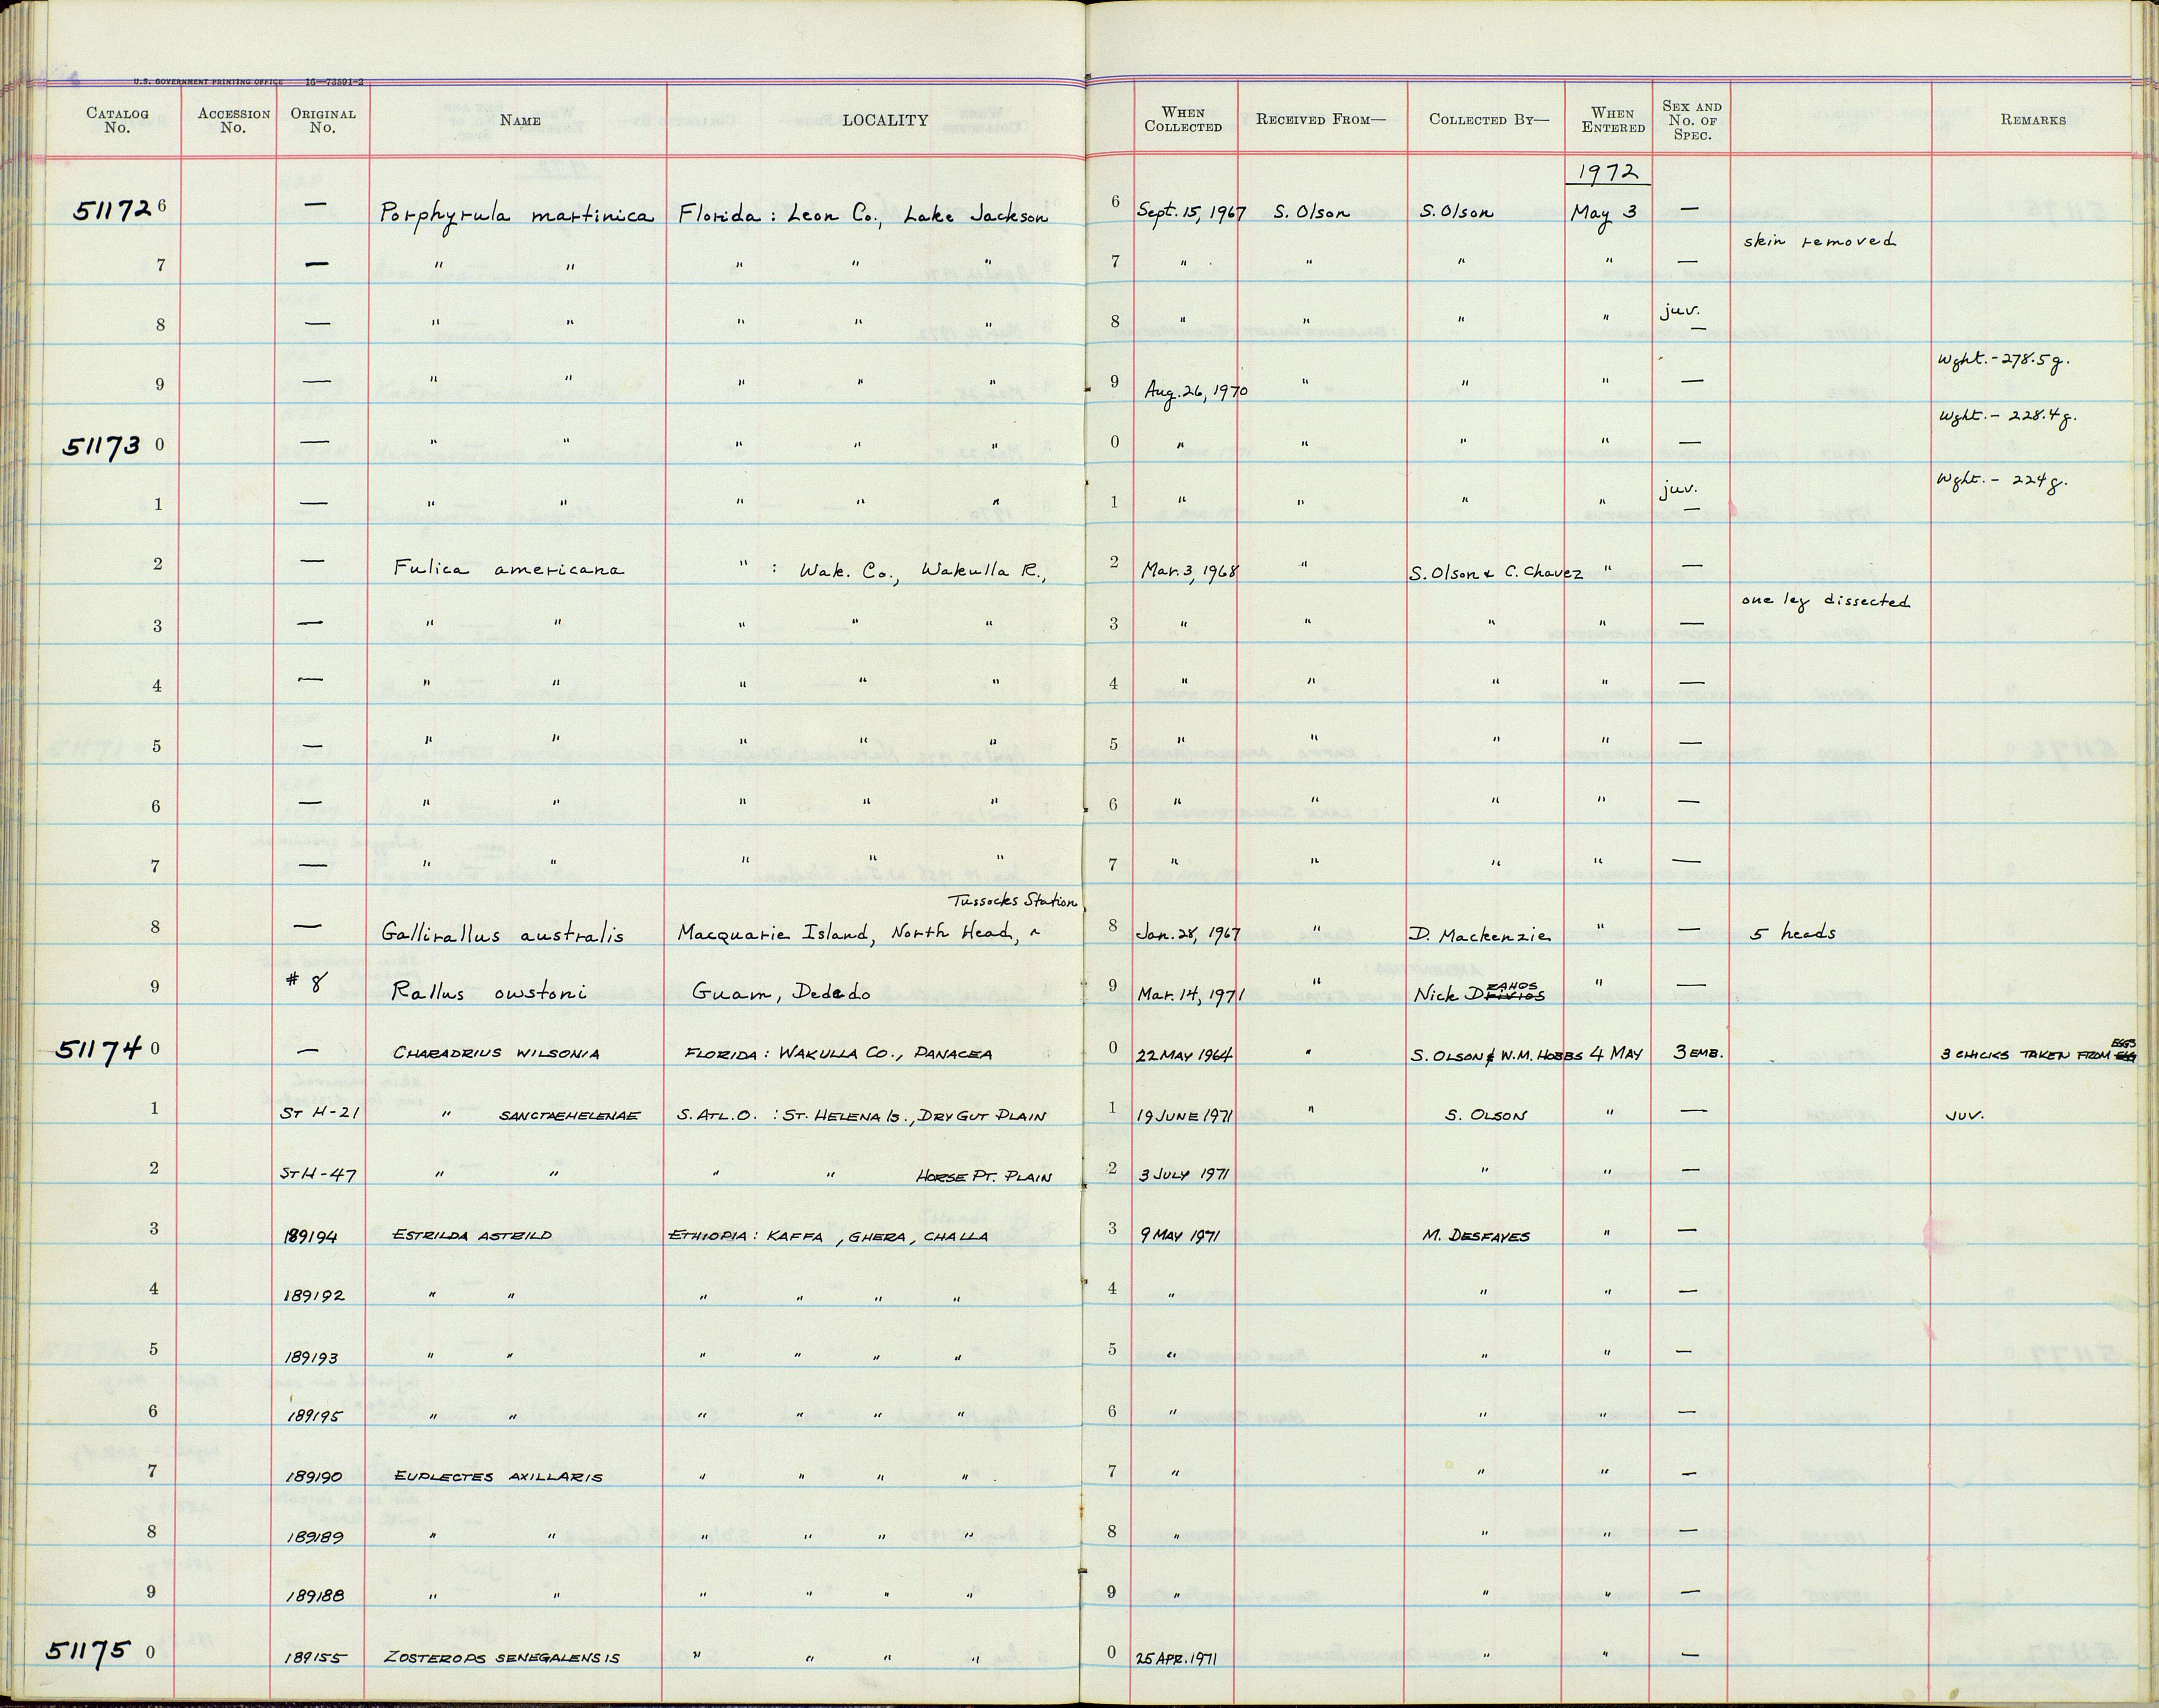 U.S. GOVERNMENT PRINTING OFFICE 16—73591-2
CATALOG No. ACCESSION No. ORIGINAL No. NAME LOCALITY WHEN COLLECTED RECEIVED FROM— COLLECTED BY— WHEN ENTERED SEX AND No. OF SPEC. REMARKS
1972
511726 — Porphyrula martinica Florida : Leon Co., Lake Jackson 6 Sept. 15, 1967 S. Olson S. Olson May 3 —
skin removed
7 — " " " " " 7 " " " " —
8 — " " " " " 8 " " " " juv. —
Wght. - 278.5 g.
9 — " " " " " 9 Aug. 26, 1970 " " " —
Wght. - 228.4 g.
51173 0 — " " " " " 0 " " " " —
Wght. - 224 g.
1 — " " " " " 1 " " " " juv. —
2 — Fulica americana " : Wak. Co., Wakulla R., 2 Mar. 3, 1968 " S. Olson & C. Chavez " —
one leg dissected
3 — " " " " " 3 " " " " —
4 — " " " " " 4 " " " " —
5 — " " " " " 5 " " " " —
6 — " " " " " 6 " " " " —
7 — " " " " " 7 " " " " —
Tussocks Station
8 — Gallirallus australis Macquarie Island, North Head, ^ 8 Jan. 28, 1967 " D. Mackenzie " — 5 heads
9 # 8 Rallus owstoni Guam, Dededo 9 Mar. 14, 1971 " Nick D " —
51174 0 — CHARADRIUS WILSONIA FLORIDA : WAKULLA CO., PANACEA 0 22 MAY 1964 " S. OLSON & W.M. HOBBS 4 MAY 3 EMB. 3 CHICKS TAKEN FROM EGGS
1 ST H-21 " SANCTAEHELENAE S. ATL. O. : ST. HELENA IS., DRY GUT PLAIN 1 19 JUNE 1971 " S. OLSON " — JUV.
2 ST H-47 " " " " HORSE PT. PLAIN 2 3 JULY 1971 " " —
3 189194 ESTRILDA ASTRILD ETHIOPIA : KAFFA , GHERA , CHALLA 3 9 MAY 1971 M. DESFAYES " —
4 189192 " " " " " " 4 " " " —
5 189193 " " " " " " 5 " " " —
6 189195 " " " " " " 6 " " " —
7 189190 EUPLECTES AXILLARIS " " " " 7 " " " —
8 189189 " " " " " " 8 " " " —
9 189188 " " " " " " 9 " " " —
51175 0 189155 ZOSTEROPS SENEGALENSIS " " " " 0 25 APR. 1971 " " —